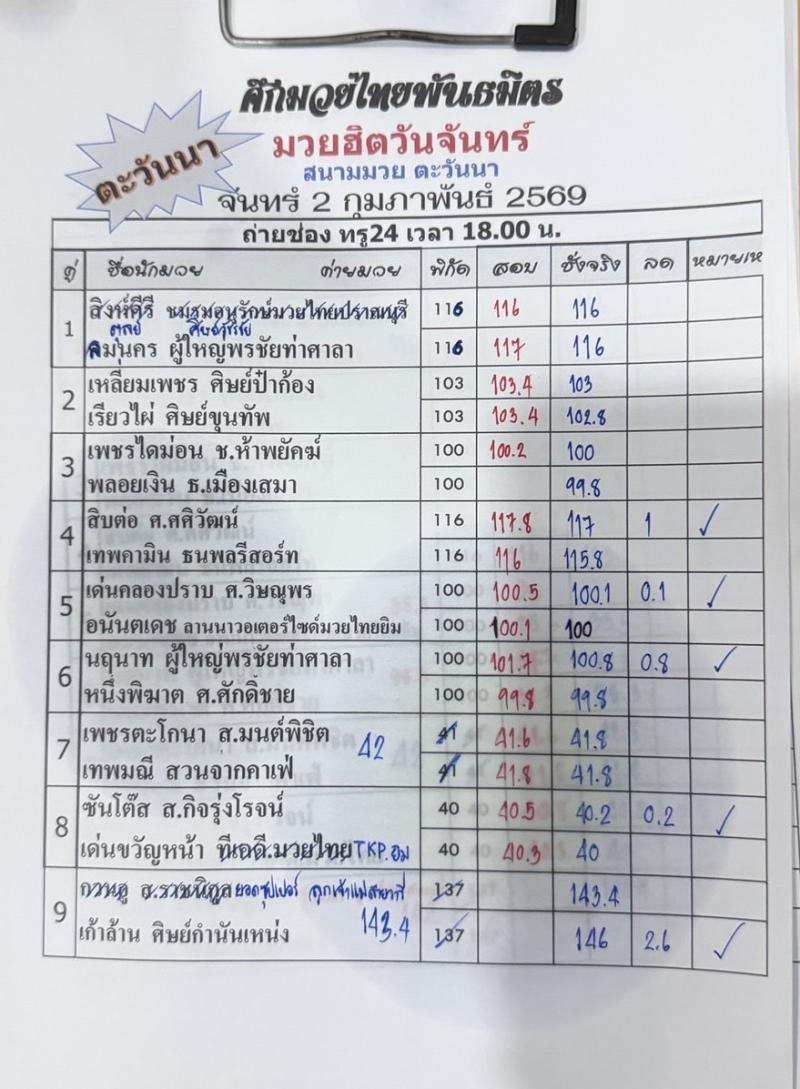 ศึกมวยไทยพันธมิตร
ตะวันนา
มวยฮิตวันจันทร์
สนามมวย ตะวันนา
จันทร์ 2 กุมภาพันธ์ 2569
ถ่ายช่อง ทรู24 เวลา 18.00 น.
คู่ ชื่อนักมวย ค่ายมวย พิกัด สอบ ชั่งจริง ลด หมายเห
1 สิงห์ดีรี ชมรมอนุรักษ์มวยไทยปราณบุรี 116 116 116
มุนคร ผู้ใหญ่พรชัยท่าศาลา 116 117 116
2 เหลี่ยมเพชร ศิษย์ป๋าก้อง 103 103.4 103
เรียวไผ่ ศิษย์ขุนทัพ 103 103.4 102.8
3 เพชรไดม่อน ช.ห้าพยัคฆ์ 100 100.2 100
พลอยเงิน ธ.เมืองเสมา 100 99.8
4 สิบต่อ ศ.ศศิวัฒน์ 116 117.8 117 1 ✓
เทพคามิน ธนพลรีสอร์ท 116 116 115.8
5 เด่นคลองปราบ ศ.วิษณุพร 100 100.5 100.1 0.1 ✓
อนันตเดช ลานนาวอเตอร์ไซด์มวยไทยยิม 100 100.1 100
6 นฤนาท ผู้ใหญ่พรชัยท่าศาลา 100 101.7 100.8 0.8 ✓
หนึ่งพิฆาต ศ.ศักดิ์ชาย 100 99.8 99.8
7 เพชรตะโกนา ส.มนต์พิชิต 42 41 41.6 41.8
เทพมณี สวนจากคาเฟ่ 41 41.8 41.8
8 ซันโต๊ส ส.กิจรุ่งโรจน์ 40 40.5 40.2 0.2 ✓
เด่นขวัญหน้า ทีเอดี.มวยไทย TKP.ยิม 40 40.3 40
9 กวนอู ส.ราชนิกูล ยอดซุปเปอร์ ลูกเจ้าแม่สายวารี 137 143.4
เก้าล้าน ศิษย์กำนันเหน่ง 143.4 137 146 2.6 ✓